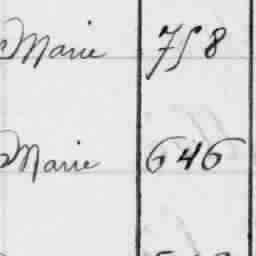 Marie 758
Marie 646